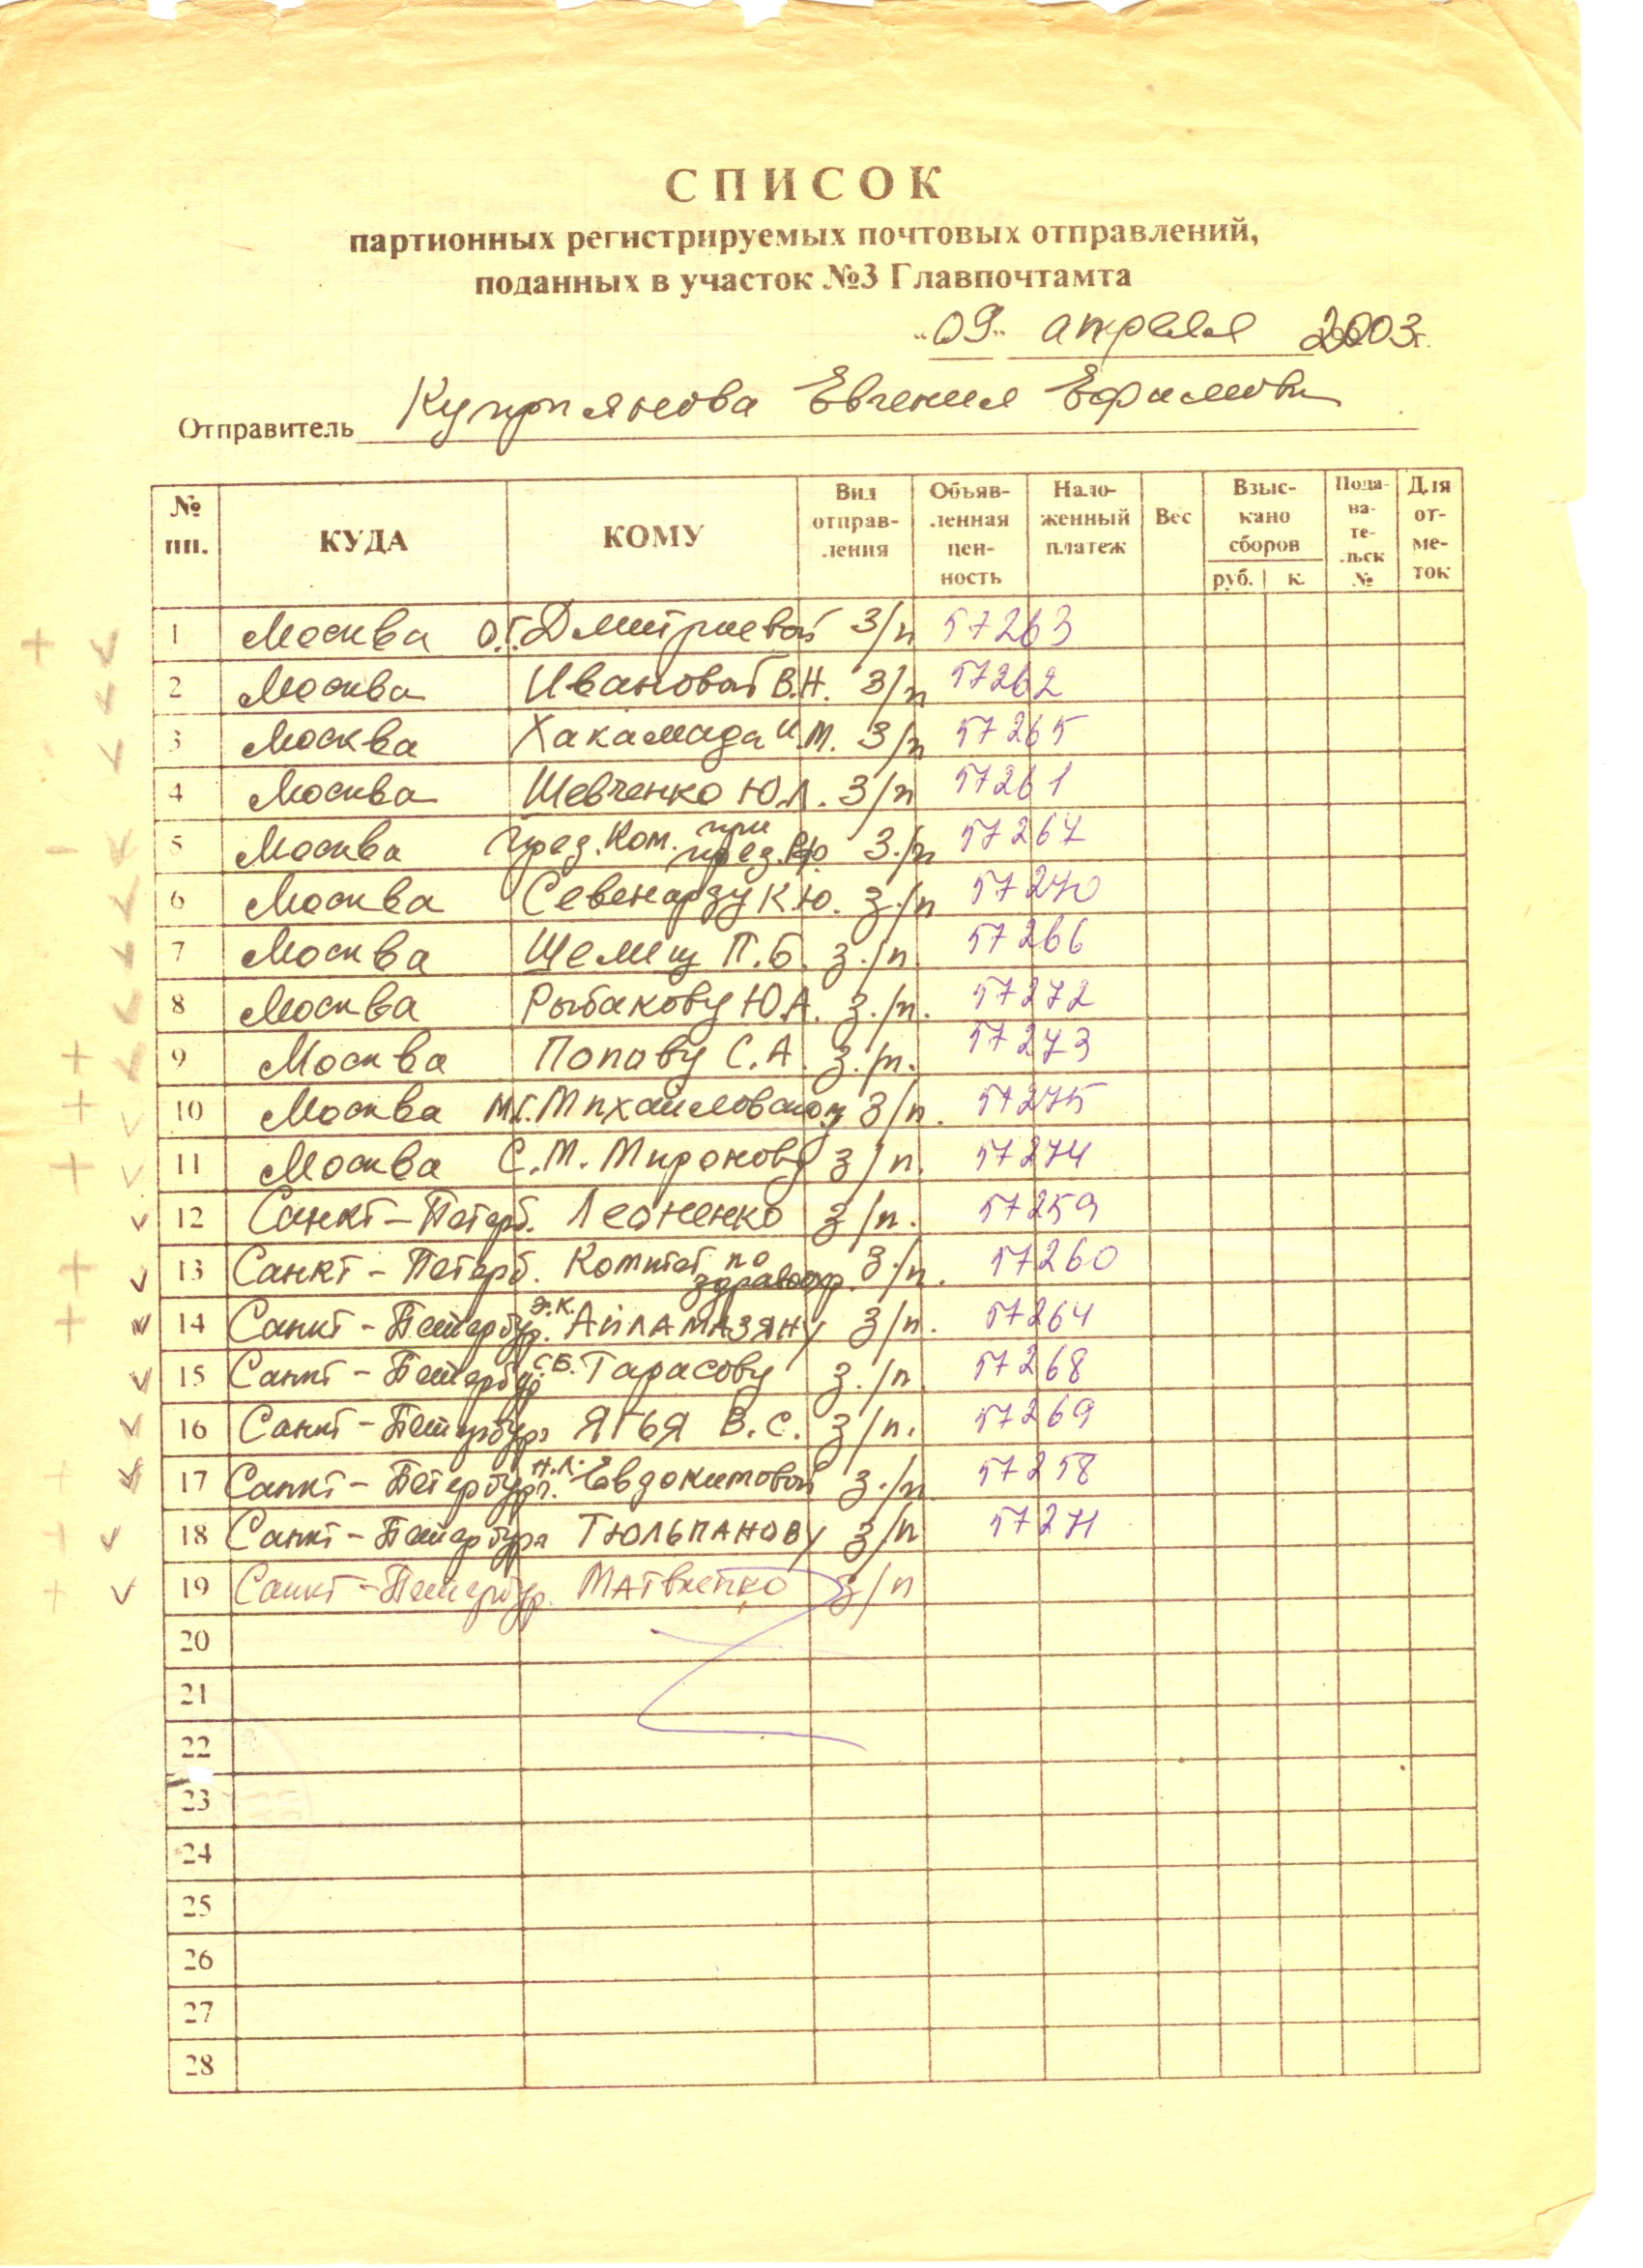 СПИСОК
партионных регистрируемых почтовых отправлений,
поданных в участок №3 Главпочтамта
"09" апреля 2003г.
Отправитель Куприянова Евгения Ефимовн
№ пп. КУДА КОМУ Вид отправ-ления Объяв-ленная цен-ность Нало-женный платеж Вес Взыс-кано сборов руб. к. Пода-ва-те-льск № Для от-ме-ток
1 Москва О.Г. Дмитриевой З/п 57263
2 Москва Ивановой В.Н. З/п 57262
3 Москва Хакамада И.М. З/п 57265
4 Москва Шевченко Ю.Л. З/п 57261
5 Москва Пред. Ком. при през. РФ З./п 57267
6 Москва Севенарду К.Ю. з./п 57270
7 Москва Шелищ П.Б. з./п. 57266
8 Москва Рыбакову Ю.А. з./п. 57272
9 Москва Попову С.А. з./п. 57273
10 Москва М.Г. Михайловскому З/п. 57275
11 Москва С.М. Миронову з/п. 57274
12 Санкт-Петерб. Леоненко з/п. 57259
13 Санкт-Петерб. Комитет по здравоохр. З./п. 57260
14 Санкт-Петербур. Э.К. Айламазяну З/п. 57264
15 Санкт-Петербур С.Б. Тарасову з./п. 57268
16 Санкт-Петербург ЯГЬЯ В.С. З/п. 57269
17 Санкт-Петербург. Н.Л. Евдокимовой з./п. 57258
18 Санкт-Петербург Тюльпанову з/п 57271
19 Санкт-Петербур. Матвиенко з/п
20
21
22
23
24
25
26
27
28